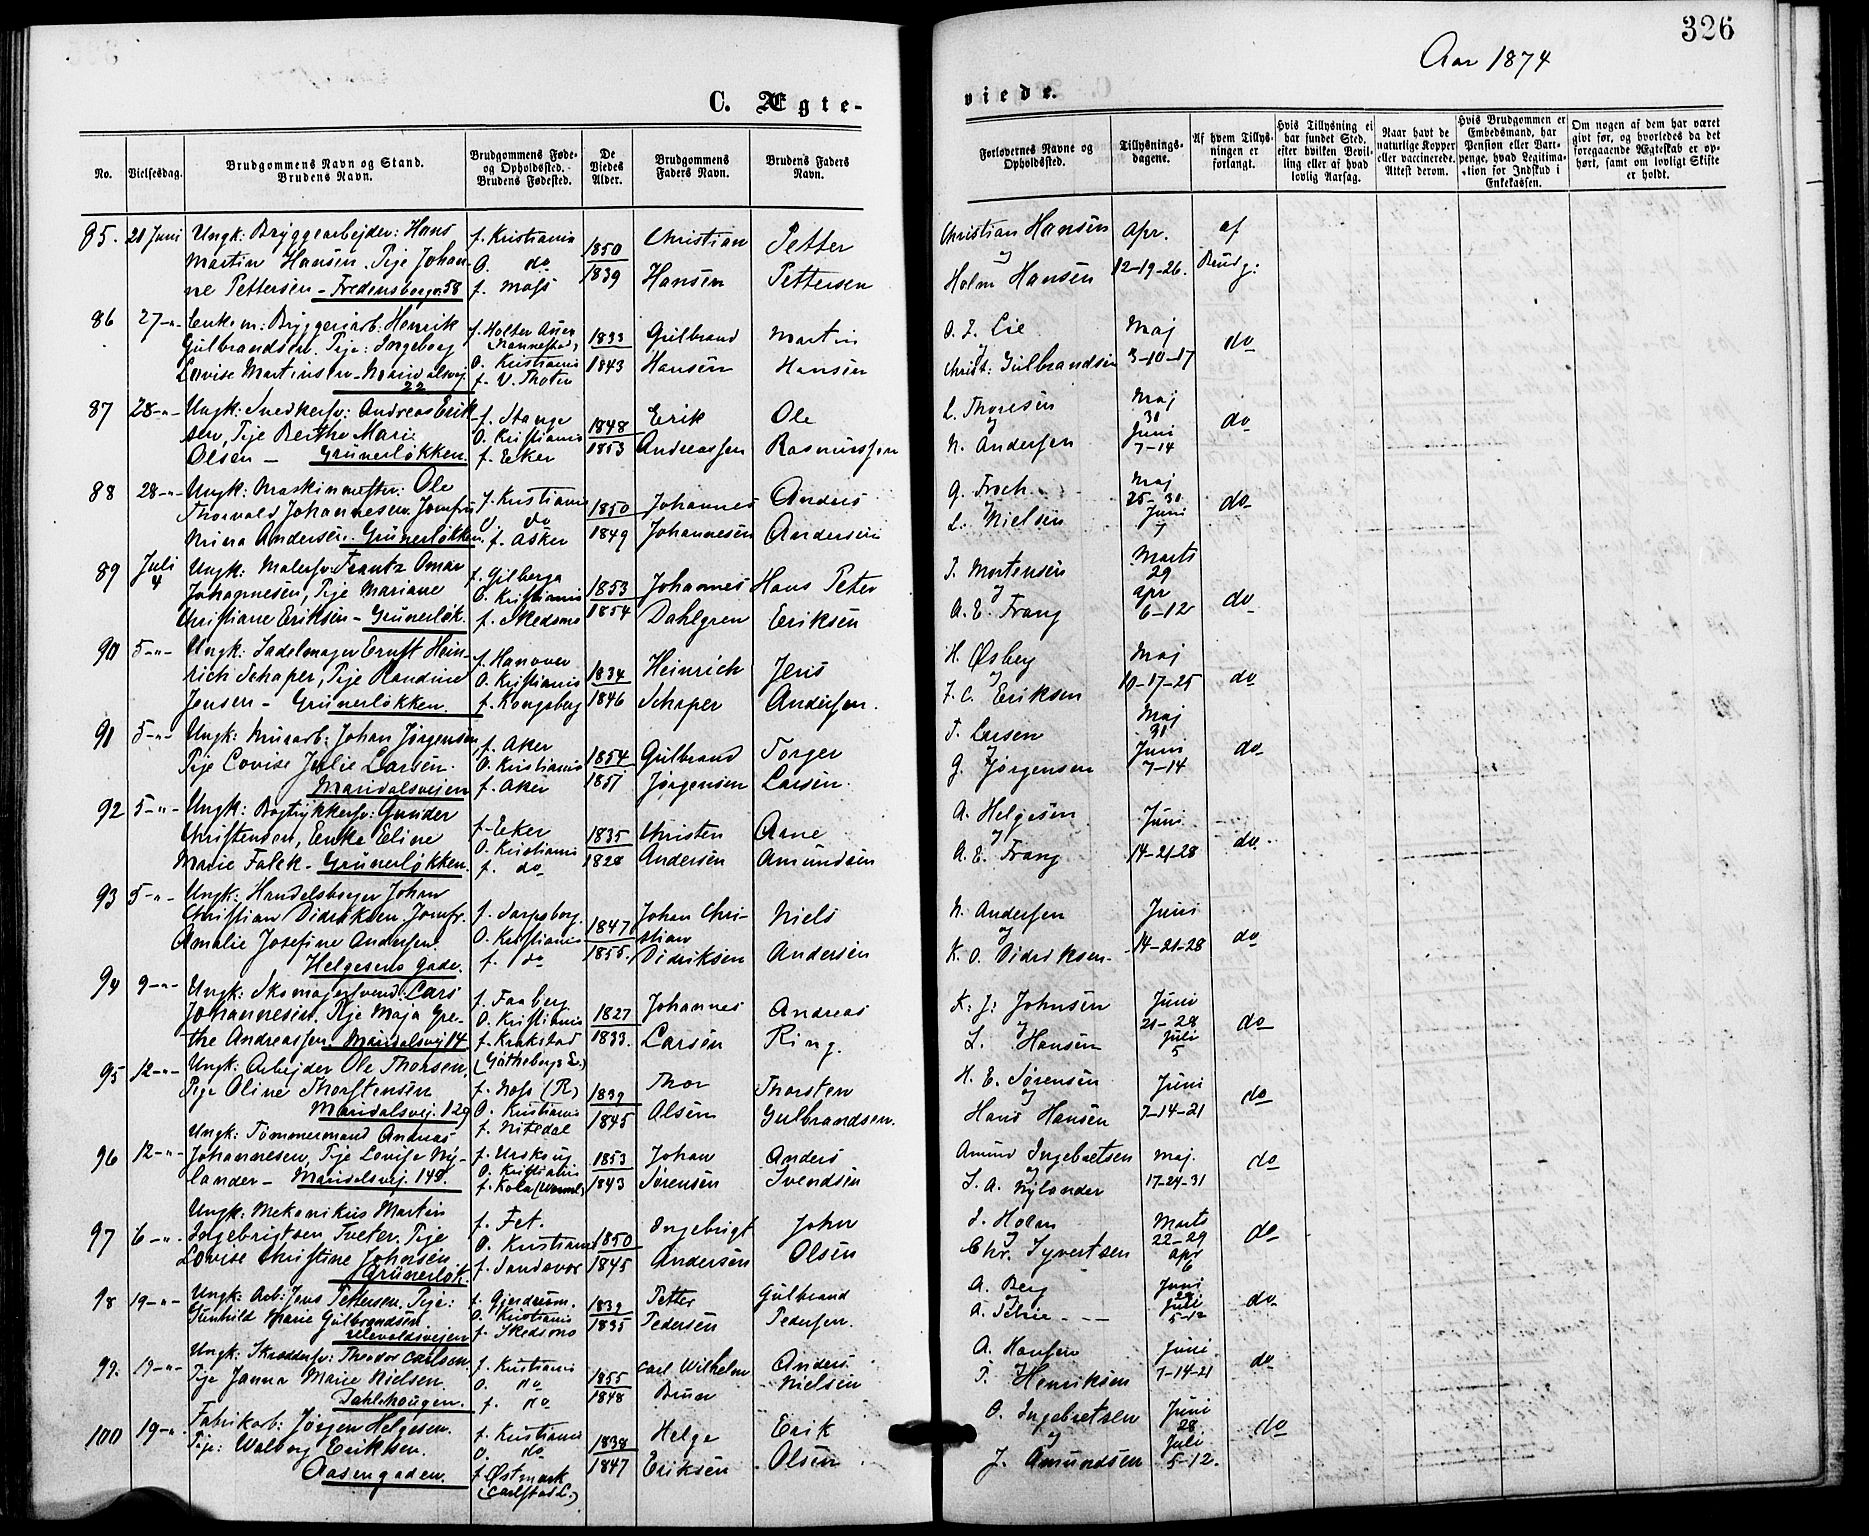 326
Aar 1874
C. Ægte-
viede.
No.
Vielsesdag.
Brudgommens Navn og Stand.
Brudens Navn.
Brudgommens Føde-
og Opholdssted.
Brudens Fødested.
De
Viedes
Alder.
Brudgommens
Faders Navn.
Brudens Faders
Navn.
Forlovernes Navne og
Opholdssted.
Tillysnings-
dagene.
Af hvem Tillys-
ningen er
forlangt.
Hvis Tillysning ei
har fundet Sted,
efter hvilken Bevil-
ling eller af hvad
lovlig Aarsag.
Naar havt de
naturlige Kopper
eller vaccinerede.
Attest derom.
Hvis Brudgommen er
Embedsmand, har
Pension eller Vart-
penge, hvad Legitima-
tion for Indskud i
Enkekassen.
Om nogen af dem har været
givt før, og hvorledes da det
foregaaende Ægteskab er op-
hørt, samt om lovligt Skifte
er holdt.
85. 21 Juni Ungk: Bryggearbejder: Hans f. Kristiania 1850 Christian Petter Christian Hansen Apr. af
Martin Hansen, Pije Johan- O. do og
ne Pettersen - Fredensborgv. 58 f. Moss 1839 Hansen Pettersen Holm Hansen 12-19-26. Brudg:
86 27-"- Enkem: Bryggeriarb: Henrik f. Holter 1833 Gulbrand Martin O. J. Lie Maj do
Gulbrandsen. Pije: Ingeborg (Nannestad) og
Lovise Martinsen - Maridalsvej. O. Kristiania 1843 Hansen Hansen Christ: Gulbrandsen 3-10-17
22 f. V. Thoten
87 28-"- Ungk: Snedkersv: Andreas Erik- f. Stange 1848 Erik Ole L. Thoresen Maj 31 do
sen, Pije Berthe Marie O. Kristiania og Juni
Olsen - Grünerløkken. f. Eker 1853 Andreassen Rasmussen N. Andersen 7-14
88 28-"- Ungk: Maskinmester: Ole f. Kristiania 1850 Johannes Anders G. Froch Maj 25-31 do
Thorvald Johannesen. Jomfru O. do Juni
Mina Andersen. Grünerløkken. f. Asker 1849 Johannesen Andersen L. Nielsen 7
89 Juli 4 Ungk: Malersv: Frantz Omar f. Gilberga 1853 Johannes Hans Peter J. Mortensen Marts 29 do
Johannesen, Pije Mariane O. Kristiania og Apr
Christiane Eriksen - Grünerløk. f. Skedsmo 1854 Dahlgren Eriksen A. E. Frang 6-12
90 5-"- Ungk: Sadelmager Ernst Hein- f. Hanover 1834 Heinrich Jens H. Øsberg Maj do
rich Schaper, Pije Randine O. Kristiania og
Jensen - Grünerløkken. f. Kongsberg 1846 Schaper Andersen. F. C. Eriksen 10-17-25
91 5-"- Ungk: Murarb: Johan Jørgensen, f. Aker 1854 Gulbrand Torger T. Larsen Maj 31 do
Pije Lovise Julie Larsen. O. Kristiania og Juni
Maridalsvejen f. Aker 1851 Jørgensen Larsen. G. Jørgensen 7-14
92 5-"- Ungk: Bogtrykkersv: Gunder f. Eker 1835 Christen Arne A. Helgesen Juni do
Christensen, Enke Eline O. Kristiania og
Marie Falck - Grünerløkken. f. do 1828 Andersen Amundsen A. E. Frang 14-21-28
93 5-"- Ungk: Handelsborger Johan f. Sarpsborg 1847 Johan Chri- Niels N. Andersen Juni do
Christian Didriksen. Jomfr. O. Kristiania stian og
Amalie Josefine Andersen. f. do 1855. Didriksen Andersen K. O. Didriksen 14-21-28
Helgesens Gade.
94 9-"- Ungk: Skomagersvend: Lars f. Faaberg 1827 Johannes Andreas K. J. Johnsen Juni 21-28 do
Johannesen. Pije Maja Gre- O. Kristiania og Juli
the Andreassen Maridalsvej 14 f. Krakstad 1833. Larsen Ring. L. Hansen 5
(Gøtheborgs L.)
95 12-"- Ungk: Arbejder Ole Thorsen, f. Moss (R) 1839 Thor Thorsten H. E. Sørensen Juni do
Pije Oline Thorstensen O. Kristiania og
Maridalsvej. 129 f. Nitedal 1845 Olsen Gulbrandsen. Hans Hansen 7-14-21
96 12-"- Ungk: Tømmermand Andreas f. Urskoug 1853 Johan Anders Amund Ingebretsen Maj. do
Johannesen, Pije Lovise Ny- O. Kristiania og
lander - Maridalsvej. 149. f. Kola (Werml.) 1843 Sørensen Svendsen S. A. Nylander 17-24-31
97 6-"- Ungk: Mekanikus Martin f. Fet. 1850 Ingebrigt John J. Holm Marts 22-29 do
Ingebrigtsen Tveter. Pije O. Kristiania og Apr
Lovise Christine Johnsen f. Sandsvær 1845 Andersen Olsen Chr. Syvertsen 6
Grünerløk.
98 19-"- Ungk. Arb: Jens Pettersen. Pije: f. Gjerdrum. 1839 Petter Gulbrand A. Berg Juni 28 do
Gunhild Marie Gulbrandsen. O. Kristiania Juli
Ullevoldsvejen f. Skedsmo 1835 Pedersen Pedersen. 5-12
99. 19-"- Ungk: Skræddersv: Theodor Carlsen. f. Kristiania 1855 Carl Wilhelm Anders A. Hansen Juni. do
Pije Janna Marie Nielsen. O. do og
Dahlehougen. f. do 1848 Bruun Nielsen P. Henriksen 7-14-21
100 19-"- Fabrikarb: Jørgen Helgesen. f. Kristiania 1838 Helge Erik O. Ingebretsen Juni 28 do
Pije: Walborg Eriksen. O. do og Juli
Aasengaden. f. Østmark 1847 Eriksen Olsen J. Amundsen 5-12.
(Carlstad L.)